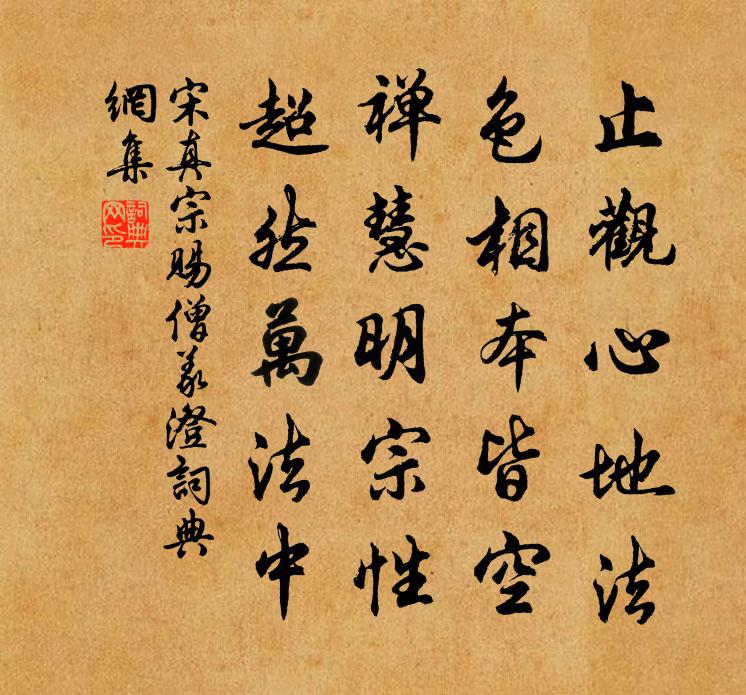 止觀心地法
色相本皆空
禅慧明宗性
超然萬法中
宋真宗賜僧義澄詞典
網集
詞典
网印